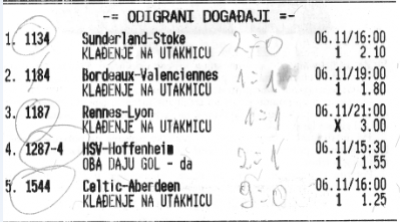 -= ODIGRANI DOGAĐAJI =-
1. 1134 Sunderland-Stoke 2=0 06.11/16:00
KLAĐENJE NA UTAKMICU 1 2.10
2. 1184 Bordeaux-Valenciennes 1=1 06.11/19:00
KLAĐENJE NA UTAKMICU 1 1.80
3. 1187 Rennes-Lyon 1=1 06.11/21:00
KLAĐENJE NA UTAKMICU X 3.00
4. 1287-4 HSV-Hoffenheim 2=1 06.11/15:30
OBA DAJU GOL - da 1 1.55
5. 1544 Celtic-Aberdeen 9=0 06.11/16:00
KLAĐENJE NA UTAKMICU 1 1.25